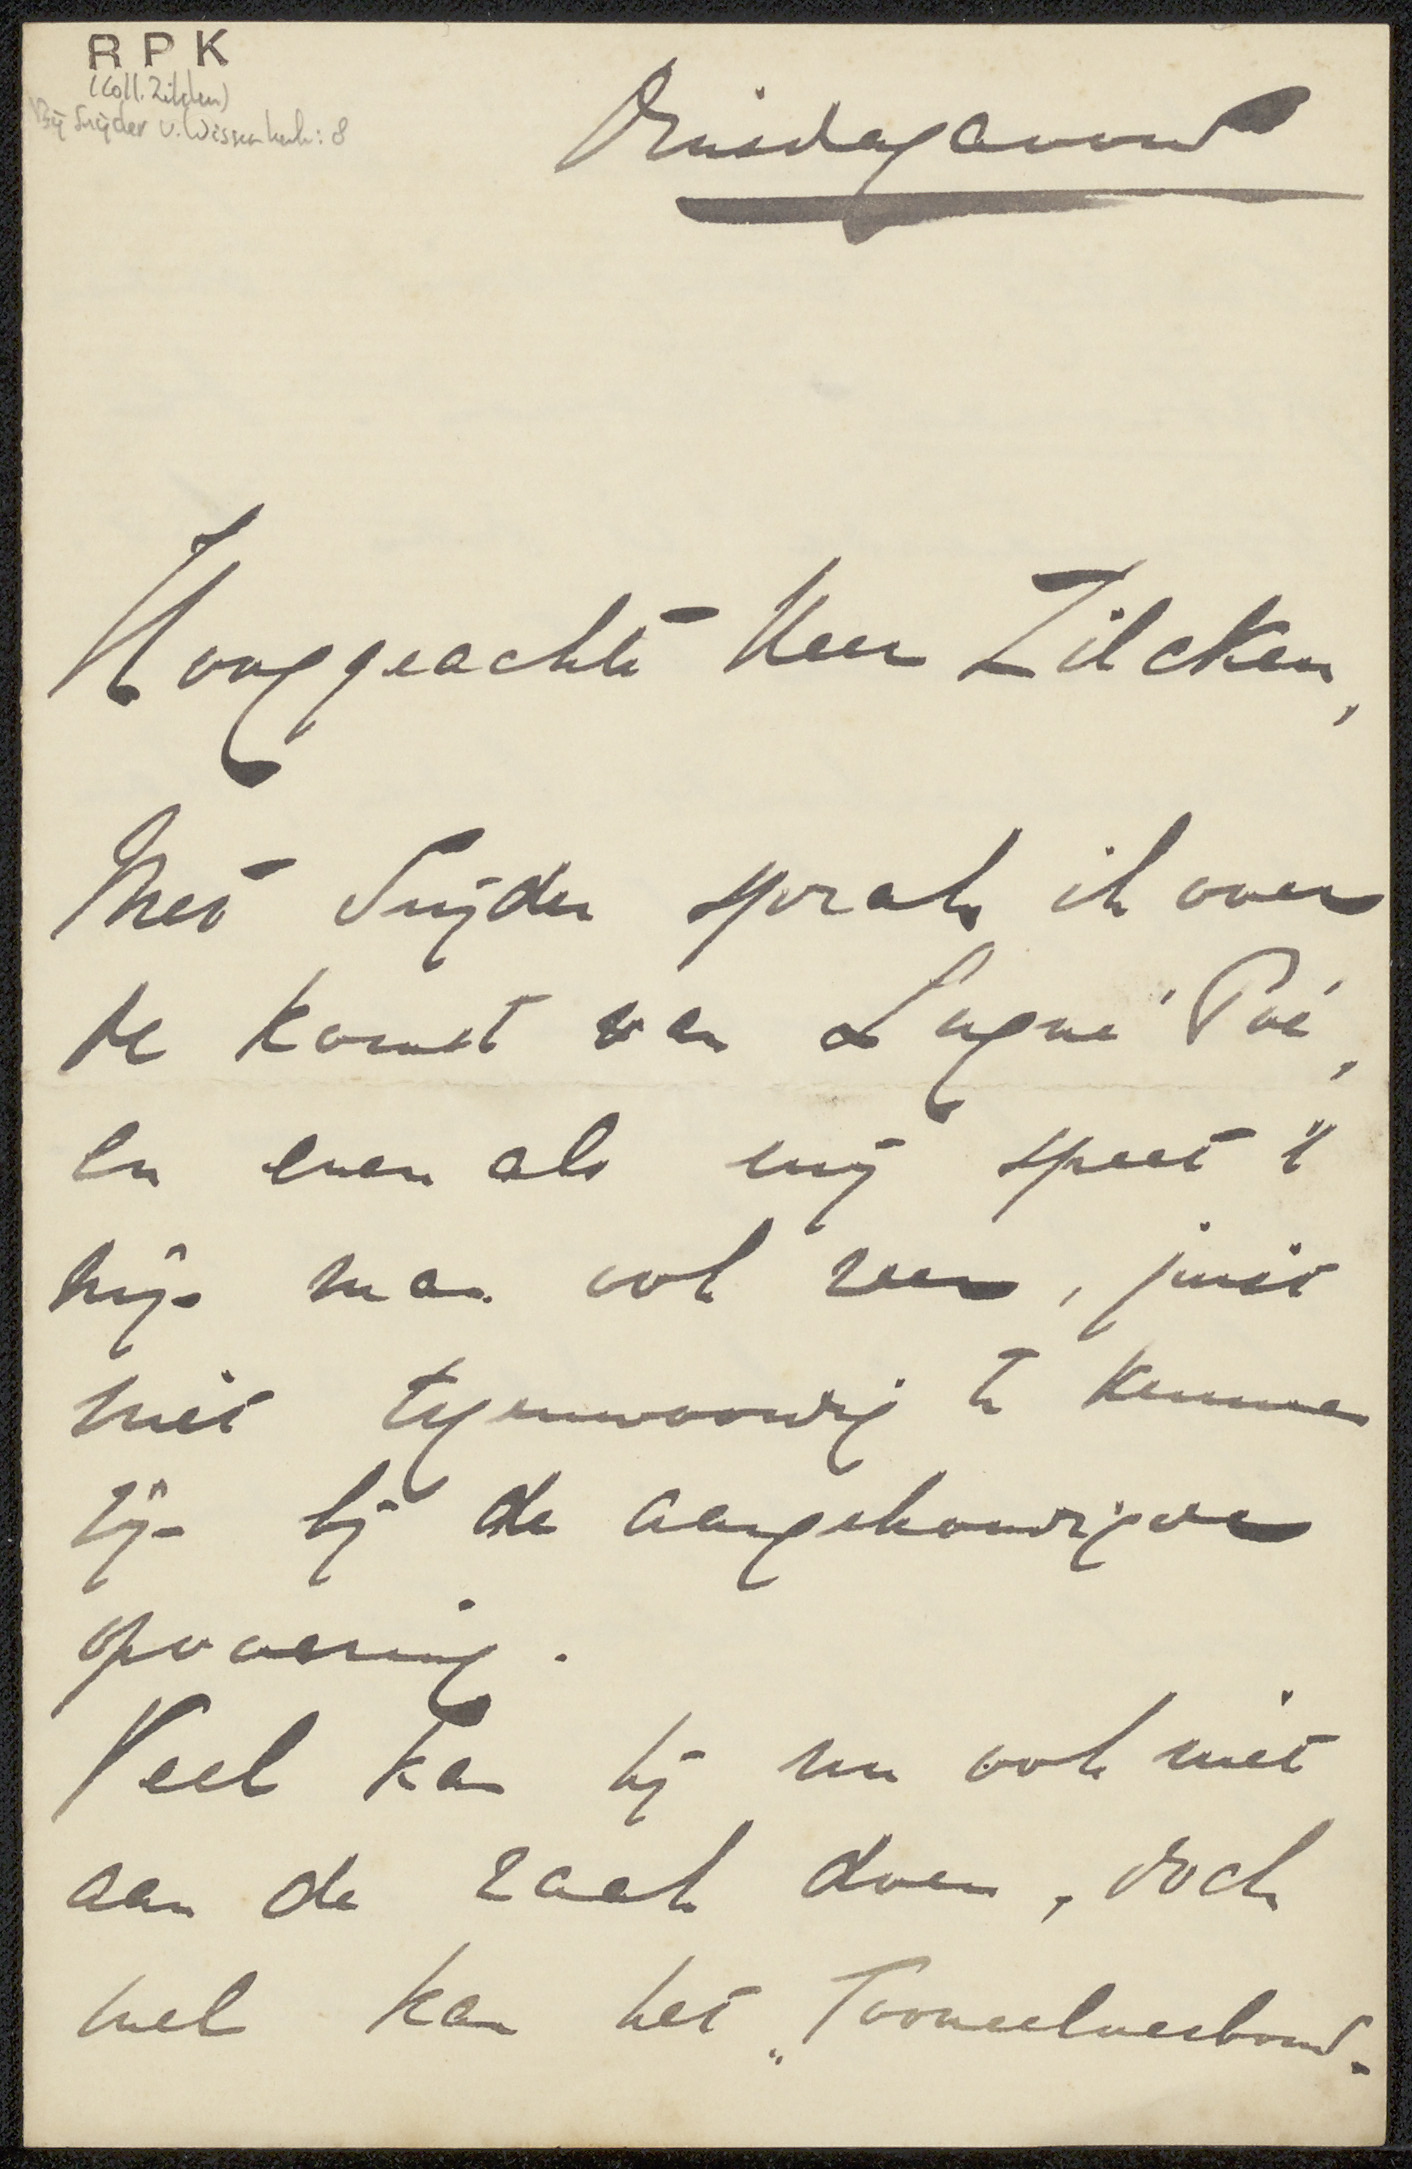 RPK
(Coll. Zilcken)
Bij Snijder v. Wissenkerke: 8
Dinsdagavond
Hooggeachte Heer Zilcken,
Met Snijder sprak ik over
de komst van Lugné Poë,
en even als mij speet 't
mijn man ook zeer, juist
niet tegenwoordig te kunnen
zijn bij de aangekondigde
opvoering.
Veel kan hij nu ook niet
aan de zaak doen, doch
wel kan het „Tooneelverbond-